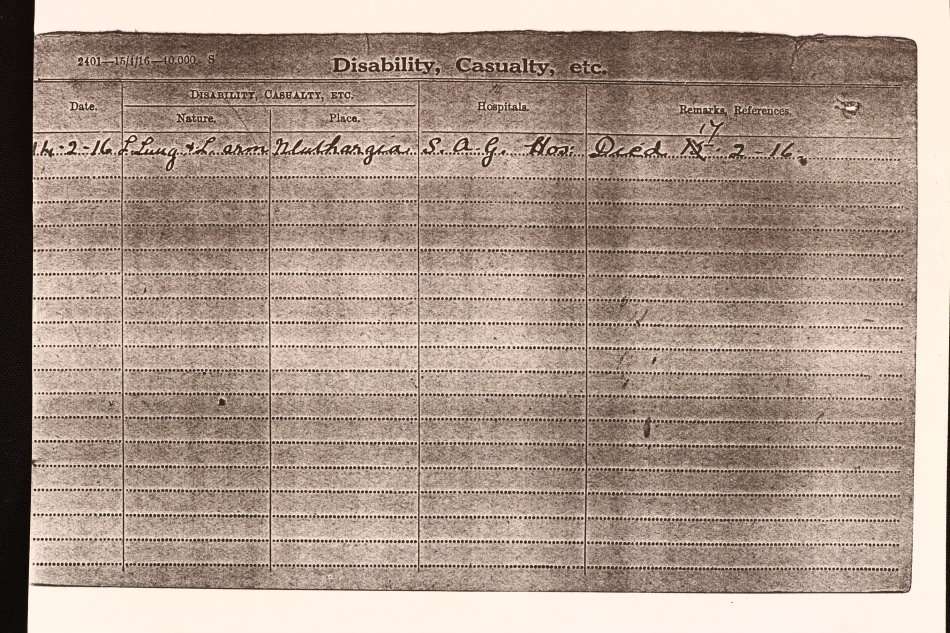 2401—15/1/16—40,000. S
Disability, Casualty, etc.
Date. DISABILITY, CASUALTY, ETC. Hospitals. Remarks, References.
Nature. Place.
17
14-2-16 L Lung & L arm Mlukhargia. S. A. G. Hos: Died 2-16.